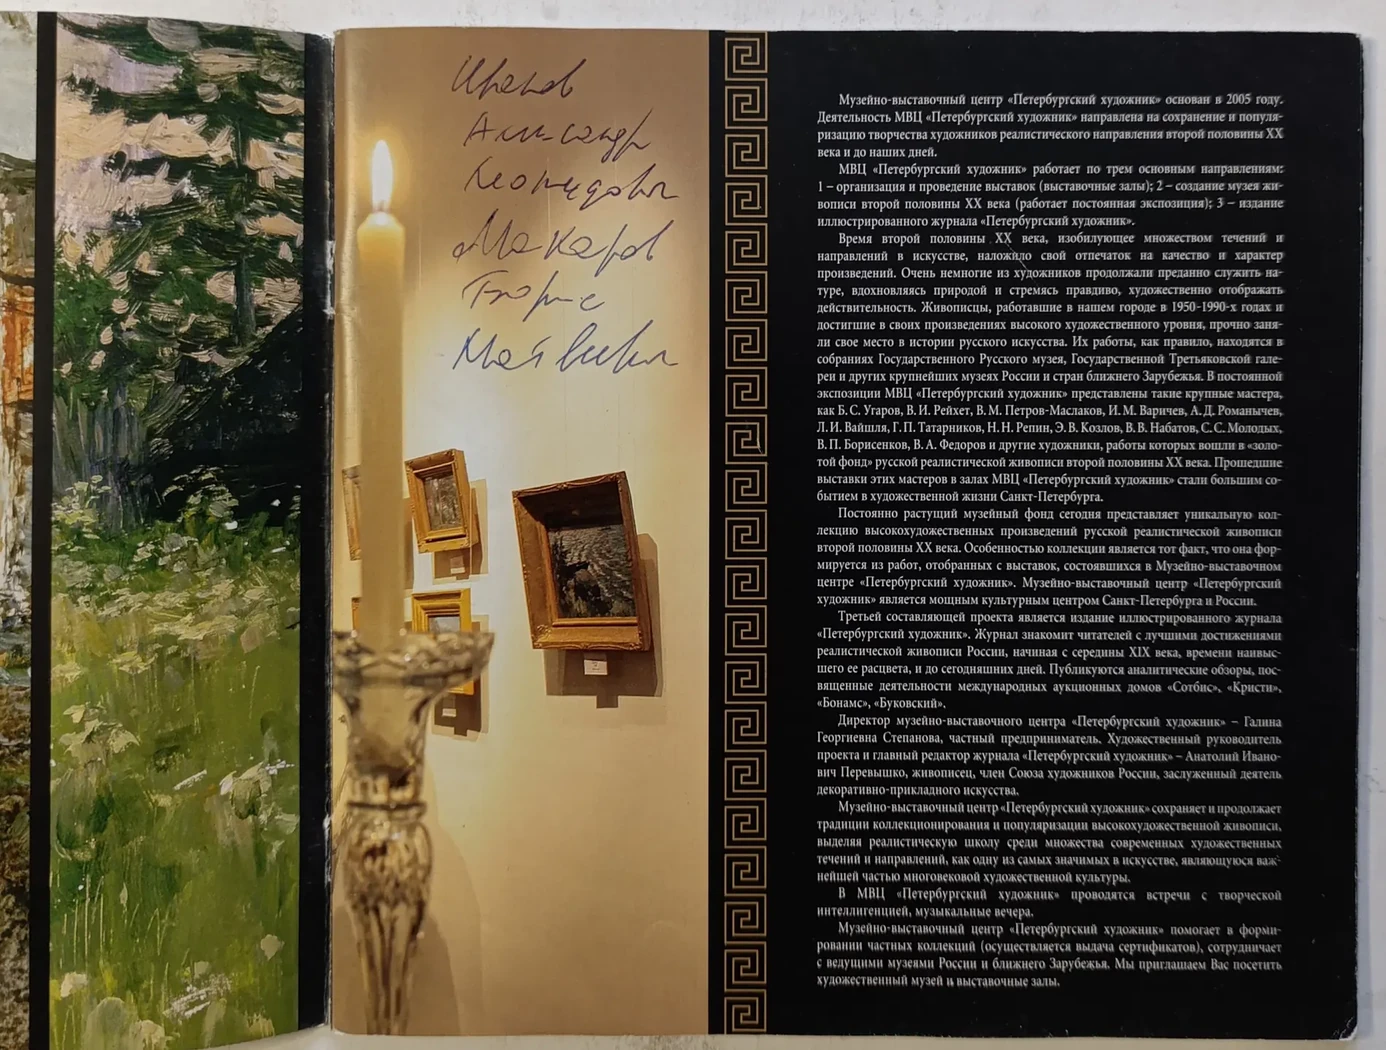 Александр
Леонидович
Макаров
Борис
Матвеевич
Музейно-выставочный центр «Петербургский художник» основан в 2005 году.
Деятельность МВЦ «Петербургский художник» направлена на сохранение и популя-
ризацию творчества художников реалистического направления второй половины XX
века и до наших дней.
МВЦ «Петербургский художник» работает по трем основным направлениям:
1 – организация и проведение выставок (выставочные залы); 2 – создание музея жи-
вописи второй половины XX века (работает постоянная экспозиция); 3 – издание
иллюстрированного журнала «Петербургский художник».
Время второй половины XX века, изобилующее множеством течений и
направлений в искусстве, наложило свой отпечаток на качество и характер
произведений. Очень немногие из художников продолжали преданно служить на-
туре, вдохновляясь природой и стремясь правдиво, художественно отображать
действительность. Живописцы, работавшие в нашем городе в 1950-1990-х годах и
достигшие в своих произведениях высокого художественного уровня, прочно заня-
ли свое место в истории русского искусства. Их работы, как правило, находятся в
собраниях Государственного Русского музея, Государственной Третьяковской гале-
реи и других крупнейших музеях России и стран ближнего Зарубежья. В постоянной
экспозиции МВЦ «Петербургский художник» представлены такие крупные мастера,
как Б. С. Угаров, В. И. Рейхет, В. М. Петров-Маслаков, И. М. Варичев, А. Д. Романычев,
Л. И. Вайшля, Г. П. Татарников, Н. Н. Репин, Э. В. Козлов, В. В. Набатов, С. С. Молодых,
В. П. Борисенков, В. А. Федоров и другие художники, работы которых вошли в «золо-
той фонд» русской реалистической живописи второй половины XX века. Прошедшие
выставки этих мастеров в залах МВЦ «Петербургский художник» стали большим со-
бытием в художественной жизни Санкт-Петербурга.
Постоянно растущий музейный фонд сегодня представляет уникальную кол-
лекцию высокохудожественных произведений русской реалистической живописи
второй половины XX века. Особенностью коллекции является тот факт, что она фор-
мируется из работ, отобранных с выставок, состоявшихся в Музейно-выставочном
центре «Петербургский художник». Музейно-выставочный центр «Петербургский
художник» является мощным культурным центром Санкт-Петербурга и России.
Третьей составляющей проекта является издание иллюстрированного журнала
«Петербургский художник». Журнал знакомит читателей с лучшими достижениями
реалистической живописи России, начиная с середины XIX века, времени наивыс-
шего ее расцвета, и до сегодняшних дней. Публикуются аналитические обзоры, пос-
вященные деятельности международных аукционных домов «Сотбис», «Кристи»,
«Бонамс», «Буковский».
Директор музейно-выставочного центра «Петербургский художник» – Галина
Георгиевна Степанова, частный предприниматель. Художественный руководитель
проекта и главный редактор журнала «Петербургский художник» – Анатолий Ивано-
вич Перевышко, живописец, член Союза художников России, заслуженный деятель
декоративно-прикладного искусства.
Музейно-выставочный центр «Петербургский художник» сохраняет и продолжает
традиции коллекционирования и популяризации высокохудожественной живописи,
выделяя реалистическую школу среди множества современных художественных
течений и направлений, как одну из самых значимых в искусстве, являющуюся важ-
нейшей частью многовековой художественной культуры.
В МВЦ «Петербургский художник» проводятся встречи с творческой
интеллигенцией, музыкальные вечера.
Музейно-выставочный центр «Петербургский художник» помогает в форми-
ровании частных коллекций (осуществляется выдача сертификатов), сотрудничает
с ведущими музеями России и ближнего Зарубежья. Мы приглашаем Вас посетить
художественный музей и выставочные залы.